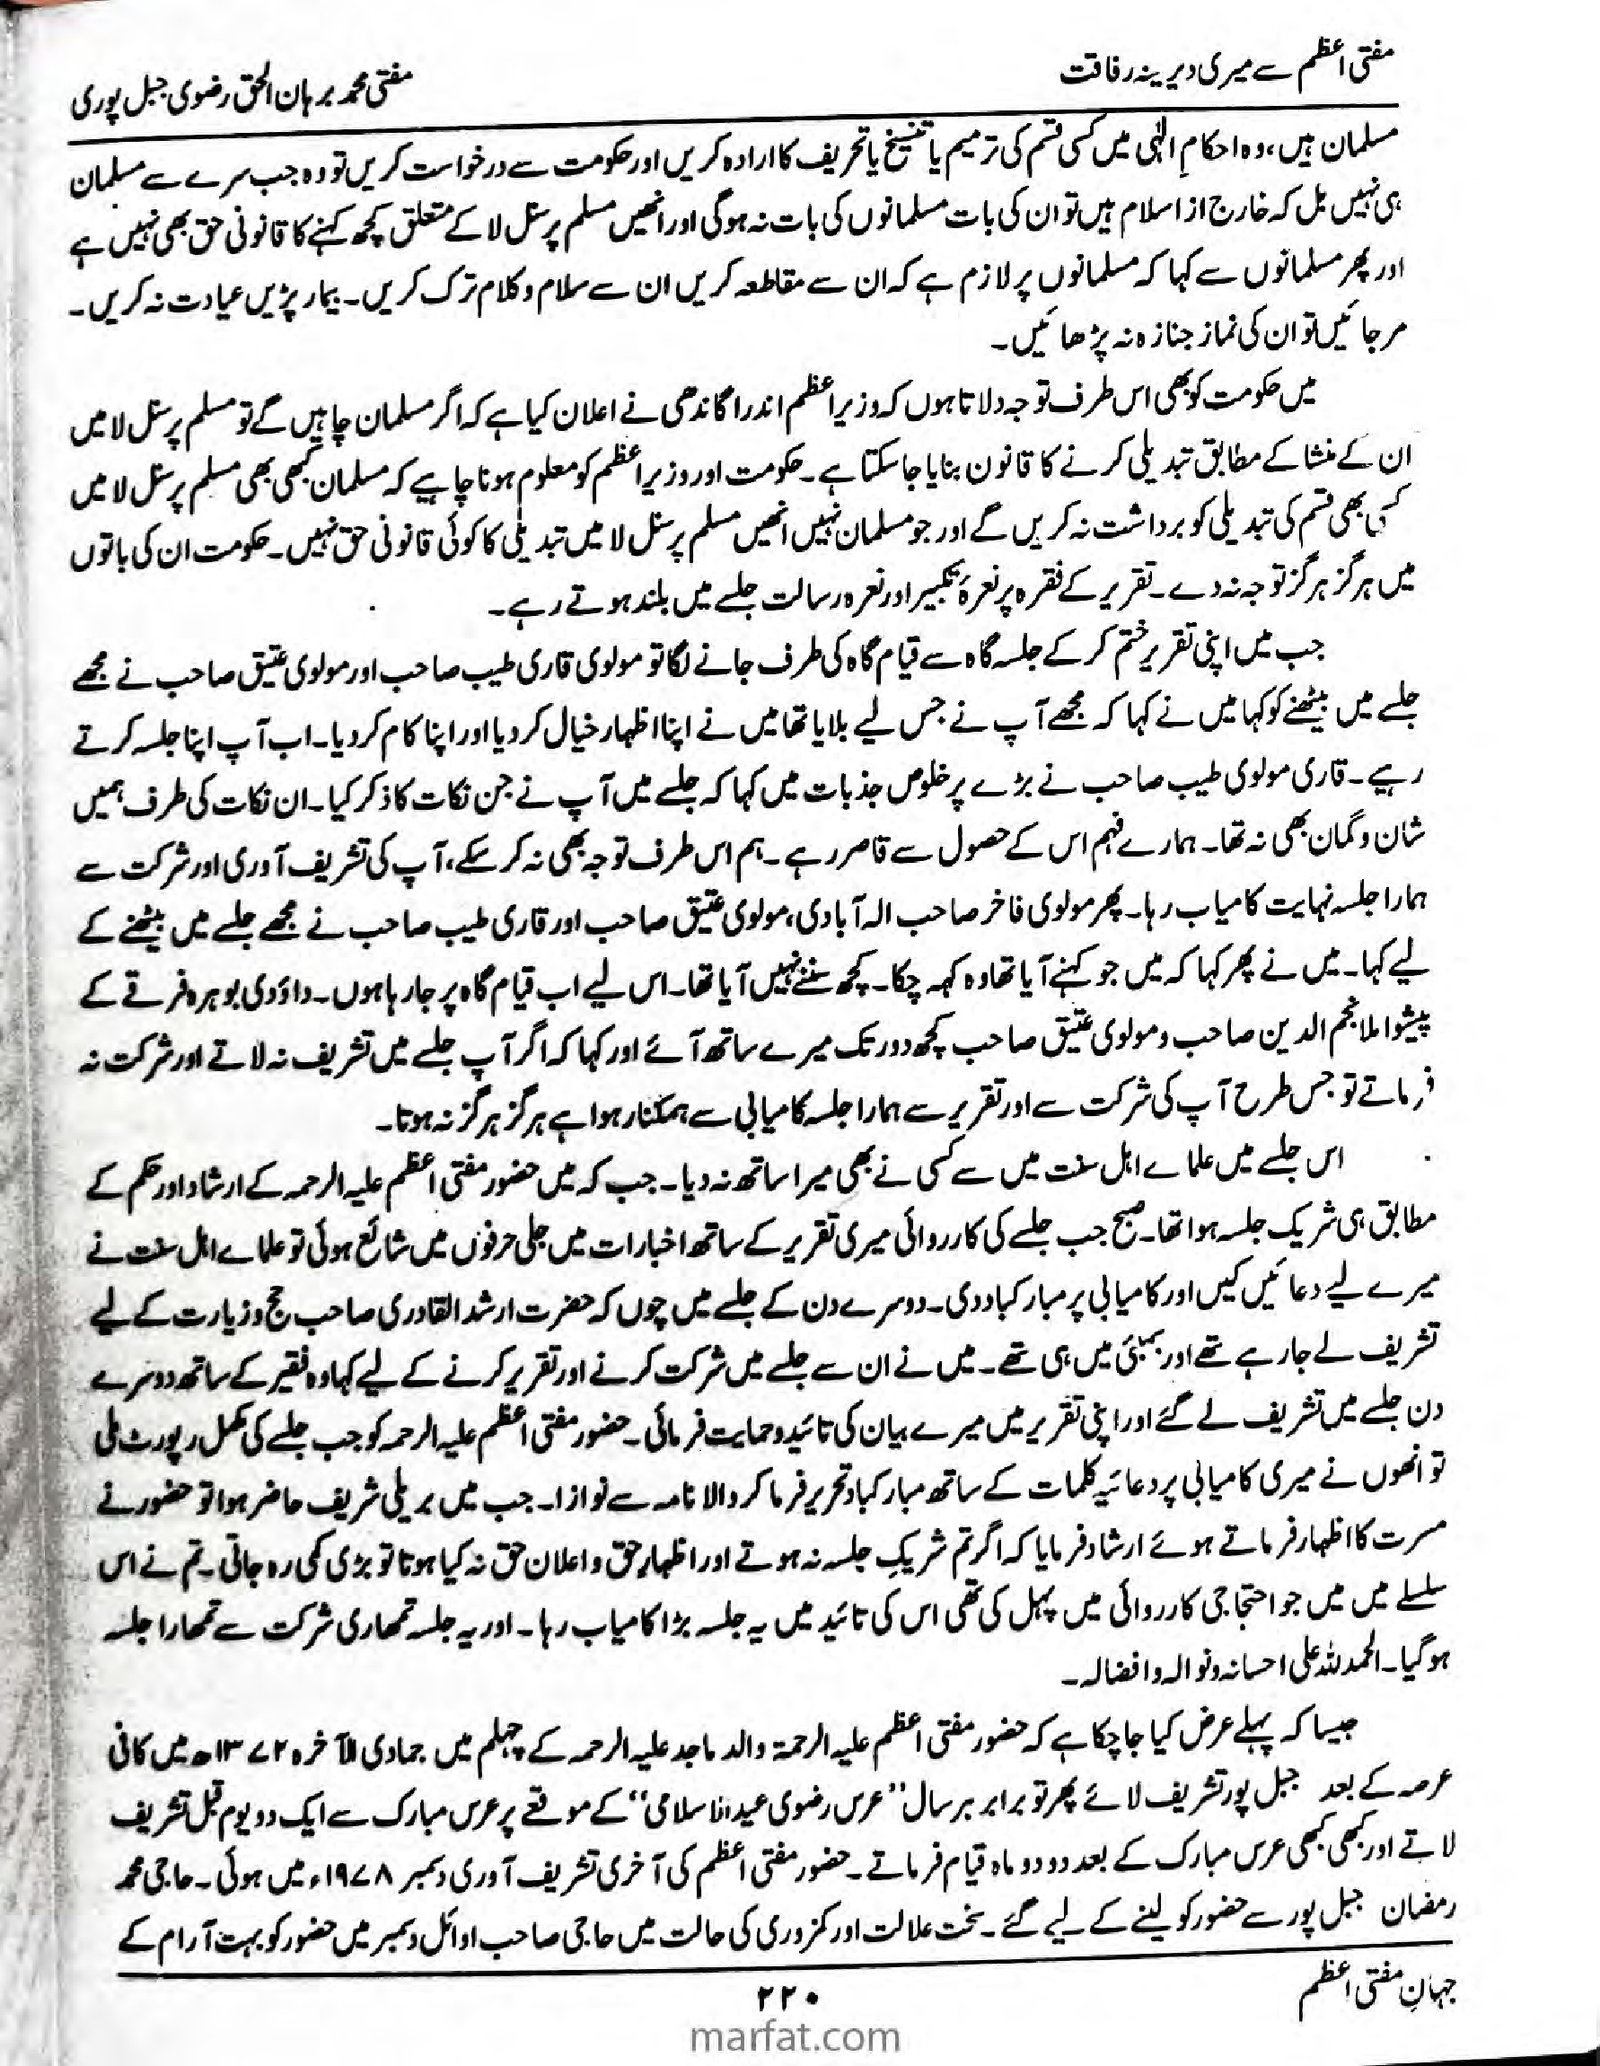 مفتی اعظم سے میری دیرینہ رفاقت
مفتی محمد برہان الحق رضوی جبل پوری
مسلمان ہیں، وہ احکامِ الٰہی میں کسی قسم کی ترمیم یا تنسیخ یا تحریف کا ارادہ کریں اور حکومت سے درخواست کریں تو وہ جب سرے سے مسلمان
ہی نہیں بل کہ خارج از اسلام ہیں تو ان کی بات مسلمانوں کی بات نہ ہوگی اور انھیں مسلم پرسنل لا کے متعلق کچھ کہنے کا قانونی حق بھی نہیں ہے
اور پھر مسلمانوں سے کہا کہ مسلمانوں پر لازم ہے کہ ان سے مقاطعہ کریں ان سے سلام و کلام ترک کریں۔ بیمار پڑیں عیادت نہ کریں۔
مرجائیں تو ان کی نماز جنازہ نہ پڑھائیں۔
میں حکومت کو بھی اس طرف توجہ دلاتا ہوں کہ وزیر اعظم اندرا گاندھی نے اعلان کیا ہے کہ اگر مسلمان چاہیں گے تو مسلم پرسنل لا میں
ان کے منشا کے مطابق تبدیلی کرنے کا قانون بنایا جا سکتا ہے۔ حکومت اور وزیر اعظم کو معلوم ہونا چاہیے کہ مسلمان کبھی بھی مسلم پرسنل لا میں
کسی بھی قسم کی تبدیلی کو برداشت نہ کریں گے اور جو مسلمان نہیں انھیں مسلم پرسنل لا میں تبدیلی کا کوئی قانونی حق نہیں۔ حکومت ان کی باتوں
میں ہرگز ہرگز توجہ نہ دے۔ تقریر کے فقرہ پر نعرۂ تکبیر اور نعرہ رسالت جلسے میں بلند ہوتے رہے۔
جب میں اپنی تقریر ختم کر کے جلسہ گاہ سے قیام گاہ کی طرف جانے لگا تو مولوی قاری طیب صاحب اور مولوی عتیق صاحب نے مجھے
جلسے میں بیٹھنے کو کہا میں نے کہا کہ مجھے آپ نے جس لیے بلایا تھا میں نے اپنا اظہار خیال کر دیا اور اپنا کام کر دیا۔ اب آپ اپنا جلسہ کرتے
رہیے۔ قاری مولوی طیب صاحب نے بڑے پرخلوص جذبات میں کہا کہ جلسے میں آپ نے جن نکات کا ذکر کیا۔ ان نکات کی طرف ہمیں
شان و گمان بھی نہ تھا۔ ہمارے فہم اس کے حصول سے قاصر رہے۔ ہم اس طرف توجہ بھی نہ کر سکے، آپ کی تشریف آوری اور شرکت سے
ہمارا جلسہ نہایت کامیاب رہا۔ پھر مولوی فاخر صاحب الہ آبادی، مولوی عتیق صاحب اور قاری طیب صاحب نے مجھے جلسے میں بیٹھنے کے
لیے کہا۔ میں نے پھر کہا کہ میں جو کہنے آیا تھا وہ کہہ چکا۔ کچھ سننے نہیں آیا تھا۔ اس لیے اب قیام گاہ پر جا رہا ہوں۔ داؤدی بوہرہ فرقے کے
پیشوا ملا نجم الدین صاحب و مولوی عتیق صاحب کچھ دور تک میرے ساتھ آئے اور کہا کہ اگر آپ جلسے میں تشریف نہ لاتے اور شرکت نہ
فرماتے تو جس طرح آپ کی شرکت سے اور تقریر سے ہمارا جلسہ کامیابی سے ہمکنار ہوا ہے ہرگز ہرگز نہ ہوتا۔
اس جلسے میں علماے اہل سنت میں سے کسی نے بھی میرا ساتھ نہ دیا۔ جب کہ میں حضور مفتی اعظم علیہ الرحمہ کے ارشاد اور حکم کے
مطابق ہی شریک جلسہ ہوا تھا۔ صبح جب جلسے کی کارروائی میری تقریر کے ساتھ اخبارات میں جلی حرفوں میں شائع ہوئی تو علماے اہل سنت نے
میرے لیے دعائیں کیں اور کامیابی پر مبارکباد دی۔ دوسرے دن کے جلسے میں چوں کہ حضرت ارشد القادری صاحب حج و زیارت کے لیے
تشریف لے جا رہے تھے اور بمبئی میں ہی تھے۔ میں نے ان سے جلسے میں شرکت کرنے اور تقریر کرنے کے لیے کہا وہ فقیر کے ساتھ دوسرے
دن جلسے میں تشریف لے گئے اور اپنی تقریر میں میرے بیان کی تائید و حمایت فرمائی۔ حضور مفتی اعظم علیہ الرحمہ کو جب جلسے کی مکمل رپورٹ ملی
تو انھوں نے میری کامیابی پر دعائیہ کلمات کے ساتھ مبارکباد تحریر فرما کر والا نامہ سے نوازا۔ جب میں بریلی شریف حاضر ہوا تو حضور نے
مسرت کا اظہار فرماتے ہوئے ارشاد فرمایا کہ اگر تم شریکِ جلسہ نہ ہوتے اور اظہارِ حق و اعلان حق نہ کیا ہوتا تو بڑی کمی رہ جاتی۔ تم نے اس
سلسلے میں میں جو احتجاجی کارروائی میں پہل کی تھی اس کی تائید میں یہ جلسہ بڑا کامیاب رہا۔ اور یہ جلسہ تمھاری شرکت سے تمھارا جلسہ
ہو گیا۔ الحمد للہ علی احسانہ و نوالہ و افضالہ۔
جیسا کہ پہلے عرض کیا جا چکا ہے کہ حضور مفتی اعظم علیہ الرحمۃ والد ماجد علیہ الرحمہ کے چہلم میں جمادی الآخرہ ۱۳۷۲ھ میں کافی
عرصہ کے بعد جبل پور تشریف لائے پھر تو برابر ہر سال ”عرس رضوی عید الاسلامی“ کے موقعے پر عرس مبارک سے ایک دو یوم قبل تشریف
لاتے اور کبھی کبھی عرس مبارک کے بعد دو دو ماہ قیام فرماتے۔ حضور مفتی اعظم کی آخری تشریف آوری دسمبر ۱۹۷۸ء میں ہوئی۔ حاجی محمد
رمضان جبل پور سے حضور کو لینے کے لیے گئے۔ سخت علالت اور کمزوری کی حالت میں حاجی صاحب اوائل دسمبر میں حضور کو بہت آرام کے
جہانِ مفتی اعظم
۲۲۰
marfat.com